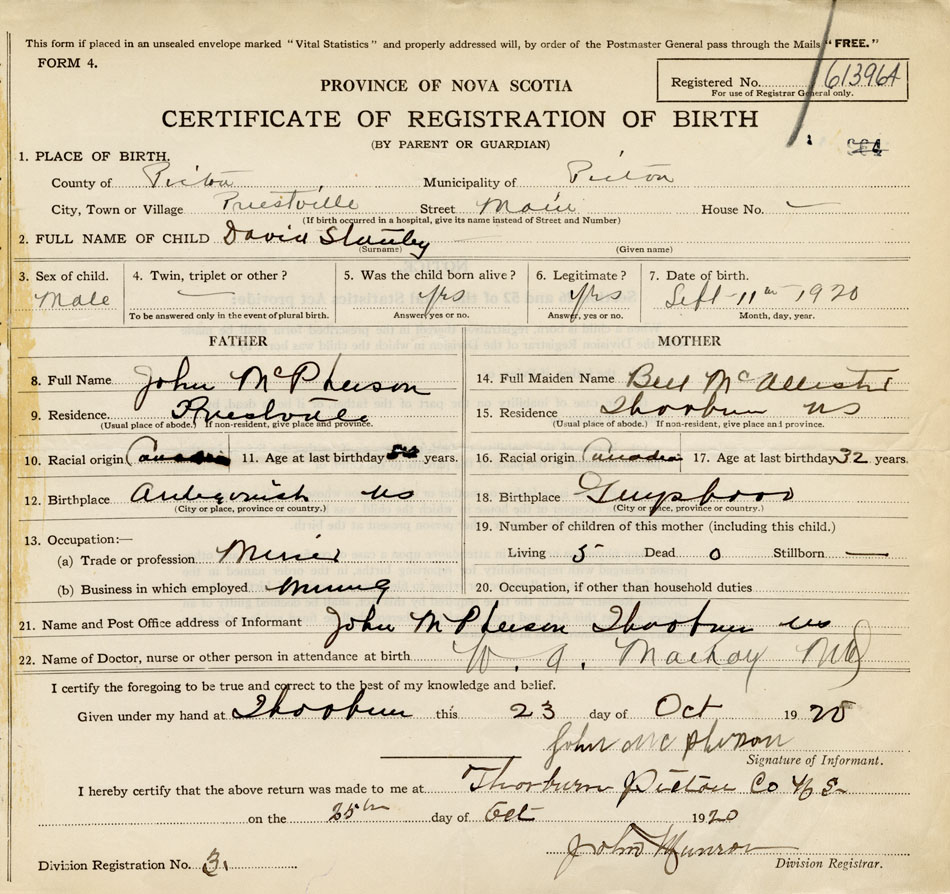 This form if placed in an unsealed envelope marked "Vital Statistics" and properly addressed will, by order of the Postmaster General pass through the Mails "FREE."
FORM 4.
PROVINCE OF NOVA SCOTIA
Registered No. 61396A
For use of Registrar General only.
CERTIFICATE OF REGISTRATION OF BIRTH
(BY PARENT OR GUARDIAN)
1. PLACE OF BIRTH,
County of Pictou Municipality of Pictou
City, Town or Village Priestville Street Main House No. —
(If birth occurred in a hospital, give its name instead of Street and Number)
2. FULL NAME OF CHILD David Stanley
(Surname) (Given name)
3. Sex of child. 4. Twin, triplet or other? 5. Was the child born alive? 6. Legitimate? 7. Date of birth.
Male — yes yes Sept - 11th - 1920
To be answered only in the event of plural birth. Answer, yes or no. Answer, yes or no. Month, day, year.
FATHER MOTHER
8. Full Name John McPherson 14. Full Maiden Name Bell McAllister
9. Residence Priestville 15. Residence Thorburn NS
(Usual place of abode.) If non-resident, give place and province. (Usual place of abode.) If non-resident, give place and province.
10. Racial origin 11. Age at last birthday years. 16. Racial origin Canadian 17. Age at last birthday 32 years.
12. Birthplace Antigonish NS 18. Birthplace Guysboro
(City or place, province or country.) (City or place, province or country.)
13. Occupation:— 19. Number of children of this mother (including this child.)
(a) Trade or profession Miner Living 5 Dead 0 Stillborn —
(b) Business in which employed Mining 20. Occupation, if other than household duties
21. Name and Post Office address of Informant John McPherson Thorburn NS
22. Name of Doctor, nurse or other person in attendance at birth W. A. Mackay MD
I certify the foregoing to be true and correct to the best of my knowledge and belief.
Given under my hand at Thorburn this 23 day of Oct 1920
John McPherson
Signature of Informant.
I hereby certify that the above return was made to me at Thorburn Pictou Co N S
on the 25th day of Oct 1920
John Munro
Division Registration No. 3. Division Registrar.